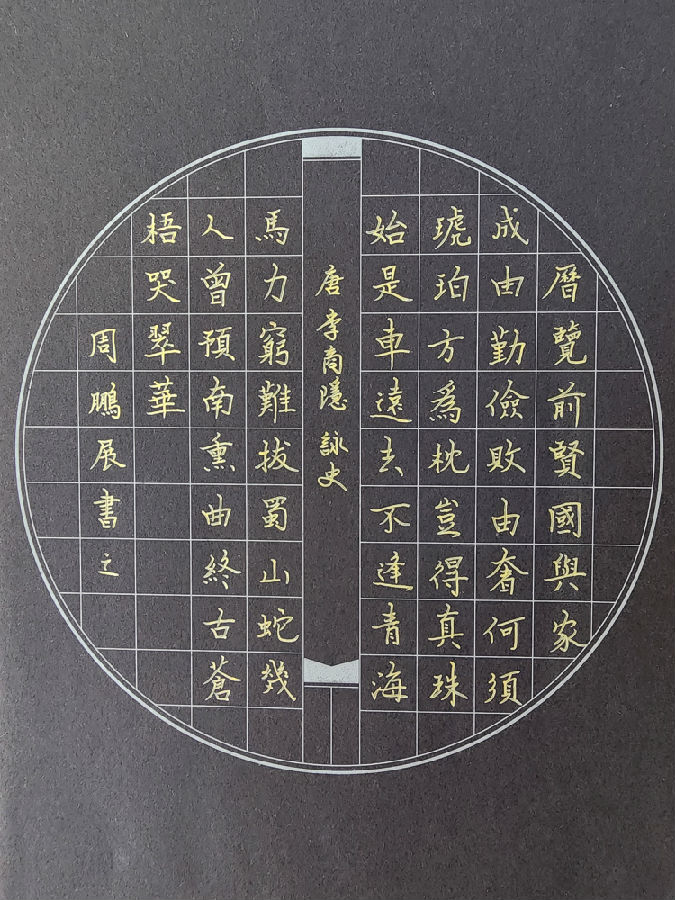 曆覽前賢國與家
成由勤儉敗由奢何須
琥珀方為枕豈得真珠
始是車遠去不逢青海
唐李商隱詠史
馬力窮難拔蜀山蛇幾
人曾預南熏曲終古蒼
梧哭翠華
周鵬展書之